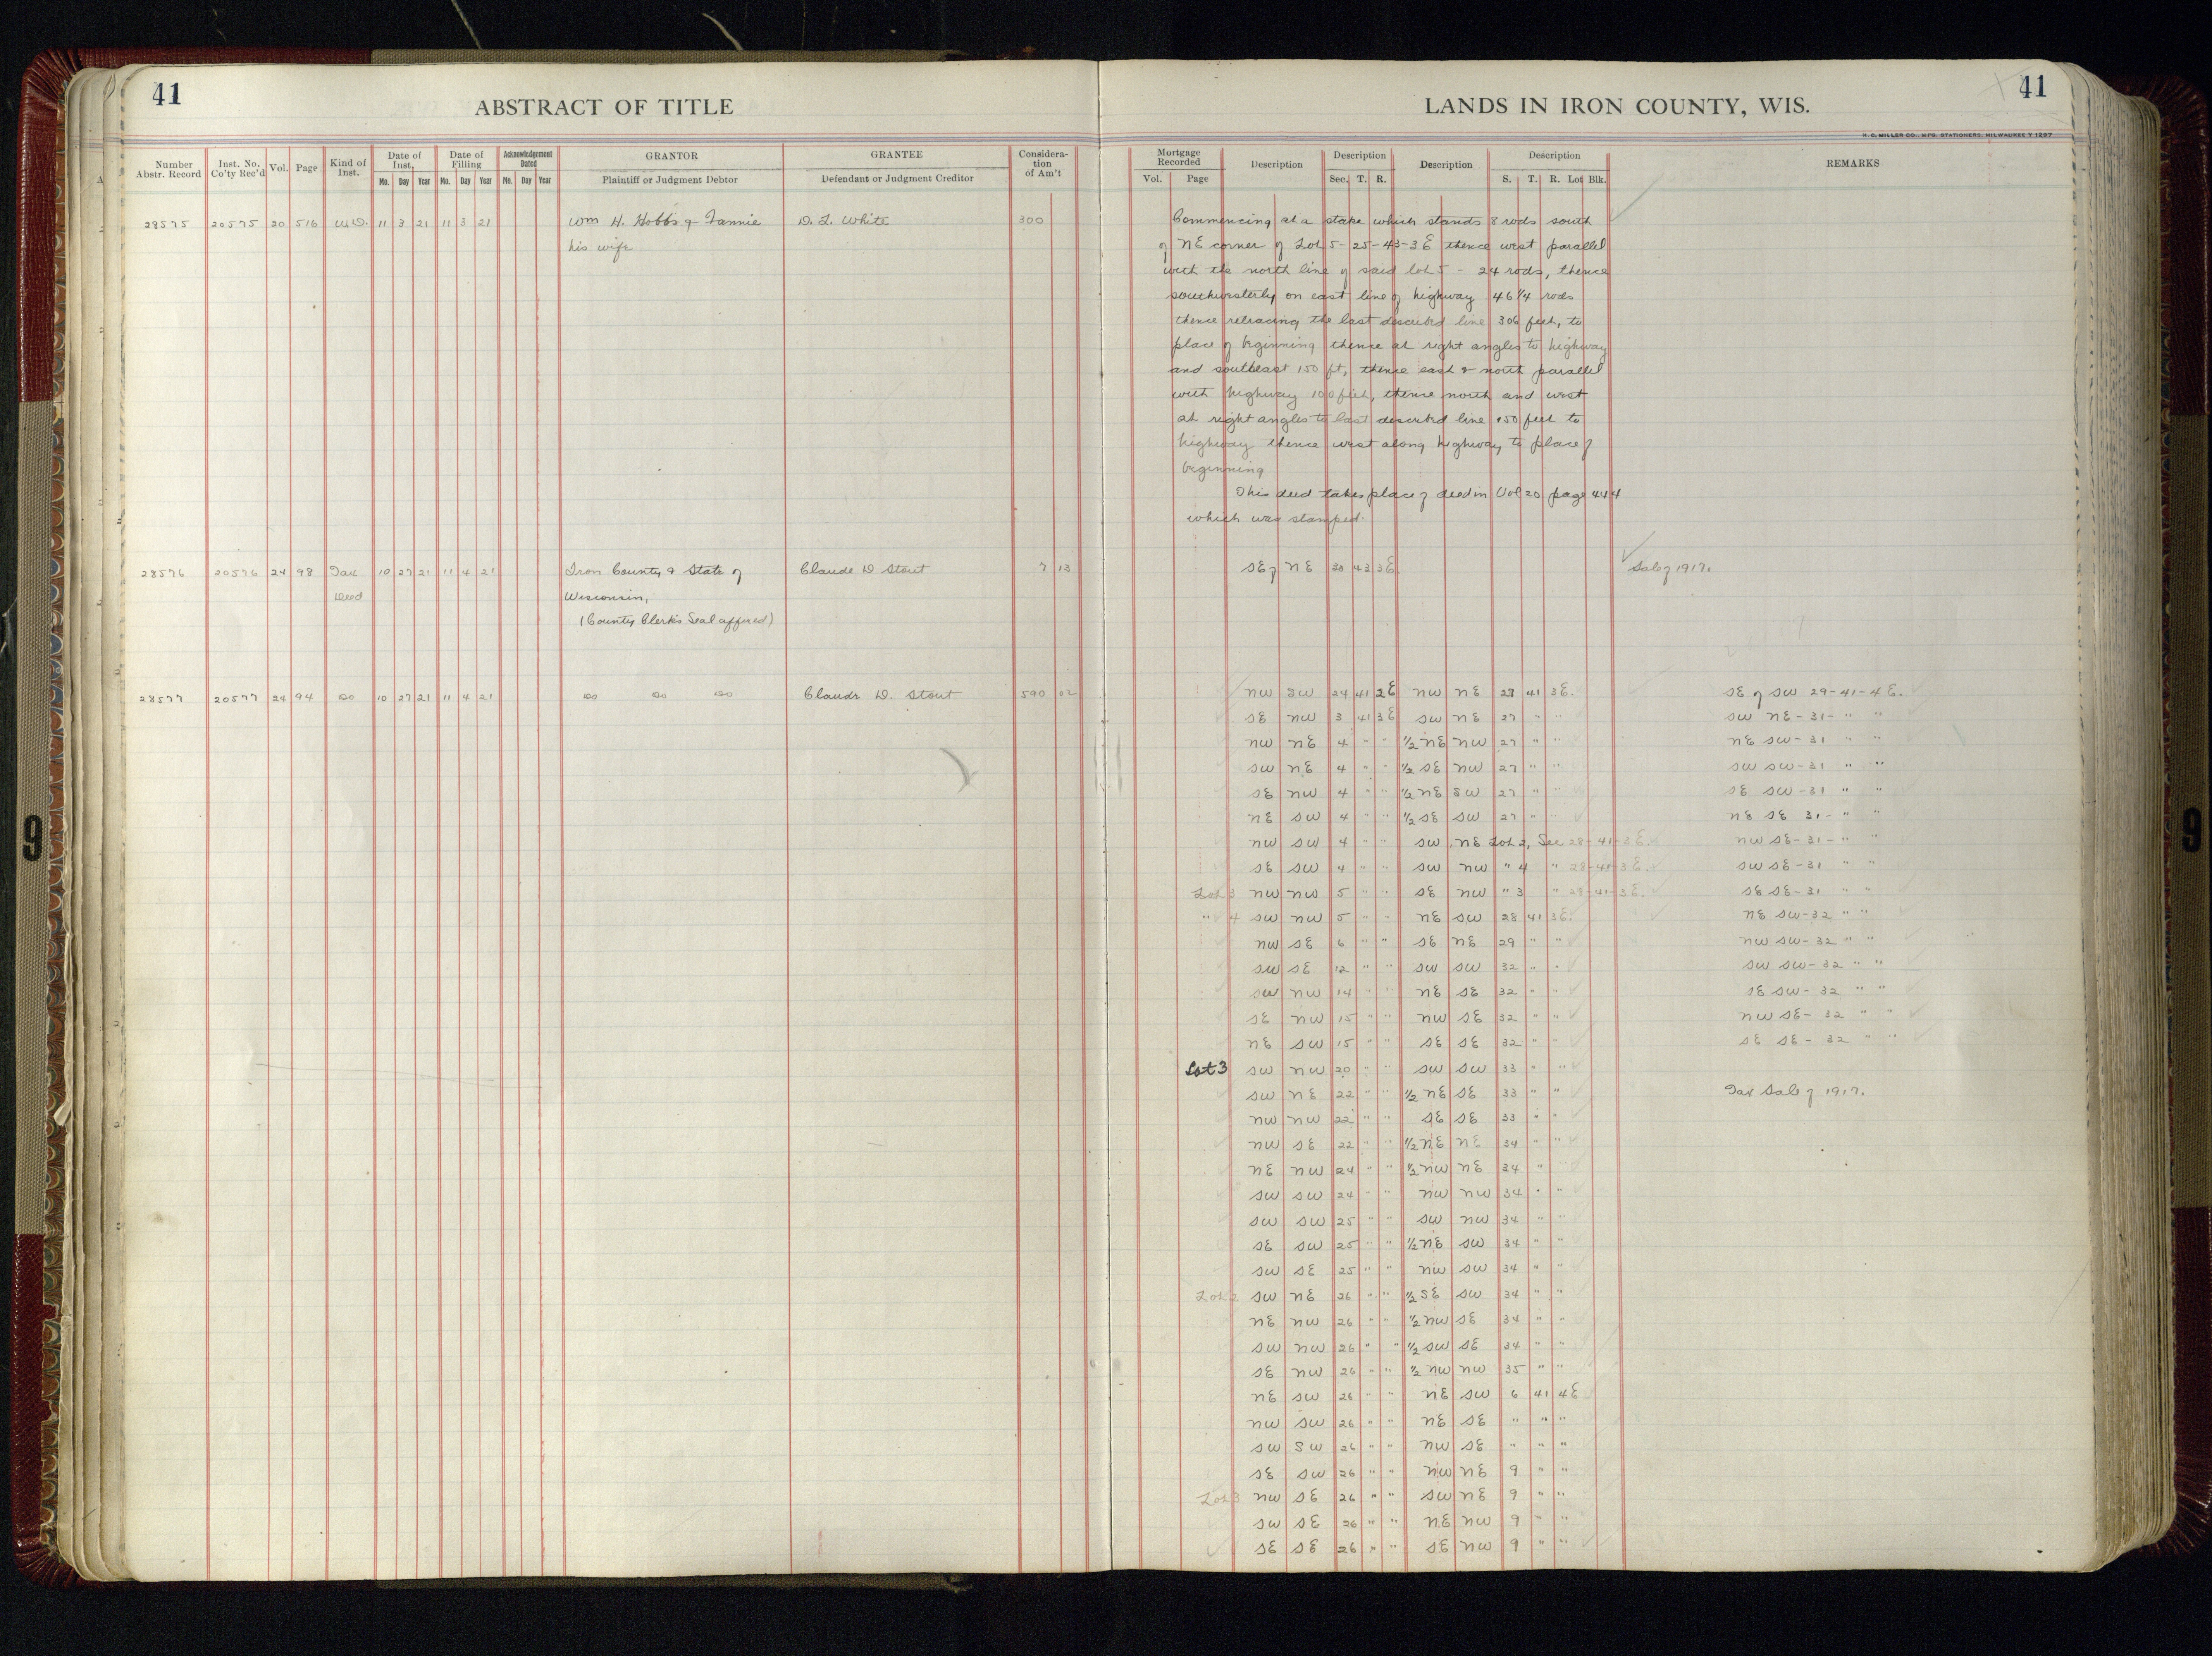 41
ABSTRACT OF TITLE
LANDS IN IRON COUNTY, WIS.
41
H. C. MILLER CO., MFG. STATIONERS, MILWAUKEE
Number Abstr. Record
Inst. No. Co'ty Rec'd
Vol.
Page
Kind of Inst.
Date of Inst.
Mo. Day Year
Date of Filling
Mo. Day Year
Acknowledgement Dated
Mo. Day Year
GRANTOR
Plaintiff or Judgment Debtor
GRANTEE
Defendant or Judgment Creditor
Considera-tion of Am't
Mortgage Recorded
Vol. Page
Description
Description
Sec. T. R.
Description
Description
S. T. R. Lot Blk.
REMARKS
28575 20575 20 516 W.D. 11 3 21 11 3 21 Wm H. Hobbs & Fannie D. L. White 300
his wife
Commencing at a stake which stands 8 rods south
of NE corner of Lot 5-25-43-3E thence west parallel
with the north line of said lot 5 - 24 rods, thence
southwesterly on east line of highway 46 1/4 rods
thence retracing the last described line 306 feet, to
place of beginning thence at right angles to highway
and southeast 150 ft, thence east & north parallel
with highway 100 feet, thence north and west
at right angles to last described line 150 feet to
highway thence west along highway to place of
beginning
This deed takes place of deed in Vol 20 page 444
which was stamped.
28576 20576 24 98 Tax 10 27 21 11 4 21 Iron County & State of Claude D Stout 7 13 SE of NE 30 43 3E Sale of 1917.
Deed Wisconsin,
(County Clerk's Seal affixed)
28577 20577 24 94 Do 10 27 21 11 4 21 Do Do Do Claude D. Stout 590 02
NW SW 24 41 2E NW NE 27 41 3E. SE of SW 29-41-4E.
SE NW 3 41 3E SW NE 27 " " SW NE-31- " "
NW NE 4 " " 1/2 NE NW 27 " " NE SW-31 " "
SW NE 4 " " 1/2 SE NW 27 " " SW SW-31 " "
SE NW 4 " " 1/2 NE SW 27 " " SE SW-31 " "
NE SW 4 " " 1/2 SE SW 27 " " NE SE 31- " "
NW SW 4 " " SW NE Lot 2, Sec 28-41-3E. NW SE-31- " "
SE SW 4 " " SW NW " 4 " 28-41-3E. SW SE-31 " "
Lot 3 NW NW 5 " " SE NW " 3 " 28-41-3E. SE SE-31 " "
" 4 SW NW 5 " " NE SW 28 41 3E. NE SW-32 " "
NW SE 6 " " SE NE 29 " " NW SW-32 " "
SW SE 12 " " SW SW 32 " " SW SW-32 " "
SW NW 14 " " NE SE 32 " " SE SW-32 " "
SE NW 15 " " NW SE 32 " " NW SE-32 " "
NE SW 15 " " SE SE 32 " " SE SE-32 " "
Lot 3 SW NW 20 " " SW SW 33 " "
SW NE 22 " " 1/2 NE SE 33 " " Tax Sale of 1917.
NW NW 22 " " SE SE 33 " "
NW SE 22 " " 1/2 NE NE 34 " "
NE NW 24 " " 1/2 NW NE 34 "
SW SW 24 " " NW NW 34 " "
SW SW 25 " " SW NW 34 " "
SE SW 25 " " 1/2 NE SW 34 " "
SW SE 25 " " NW SW 34 " "
Lot 2 SW NE 26 " " 1/2 SE SW 34 " "
NE NW 26 " " 1/2 NW SE 34 " "
SW NW 26 " " 1/2 SW SE 34 " "
SE NW 26 " " 1/2 NW NW 35 " "
NE SW 26 " " NE SW 6 41 4E
NW SW 26 " " NE SE " " "
SW SW 26 " " NW SE " " "
SE SW 26 " " NW NE 9 " "
Lot 3 NW SE 26 " " SW NE 9 " "
SW SE 26 " " NE NW 9 " "
SE SE 26 " " SE NW 9 " "
9
9